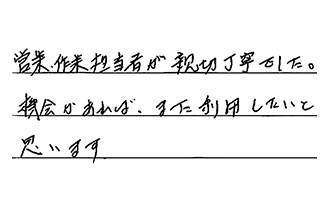 営業、作業担当者が親切丁寧でした。
機会があれば、また利用したいと
思います